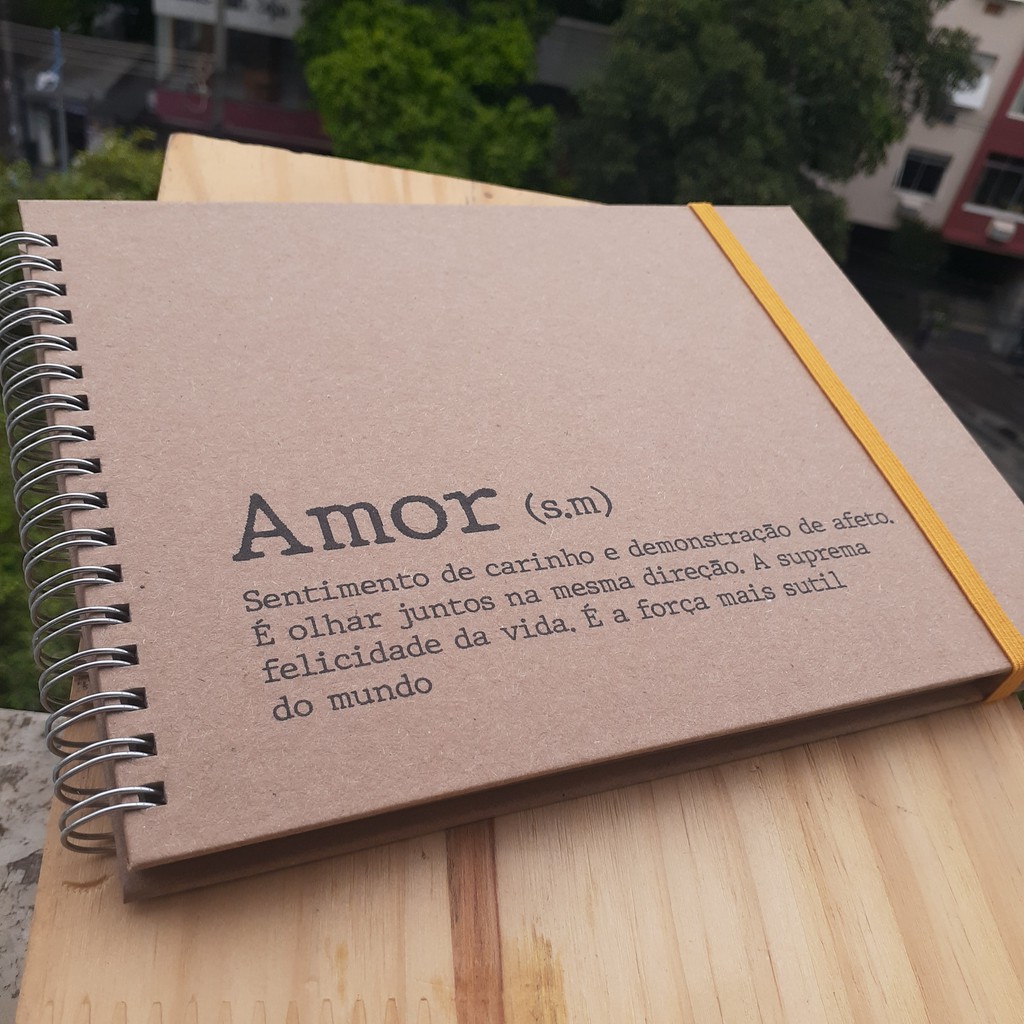 Amor (s.m)
Sentimento de carinho e demonstração de afeto.
É olhar juntos na mesma direção. A suprema
felicidade da vida. É a força mais sutil
do mundo